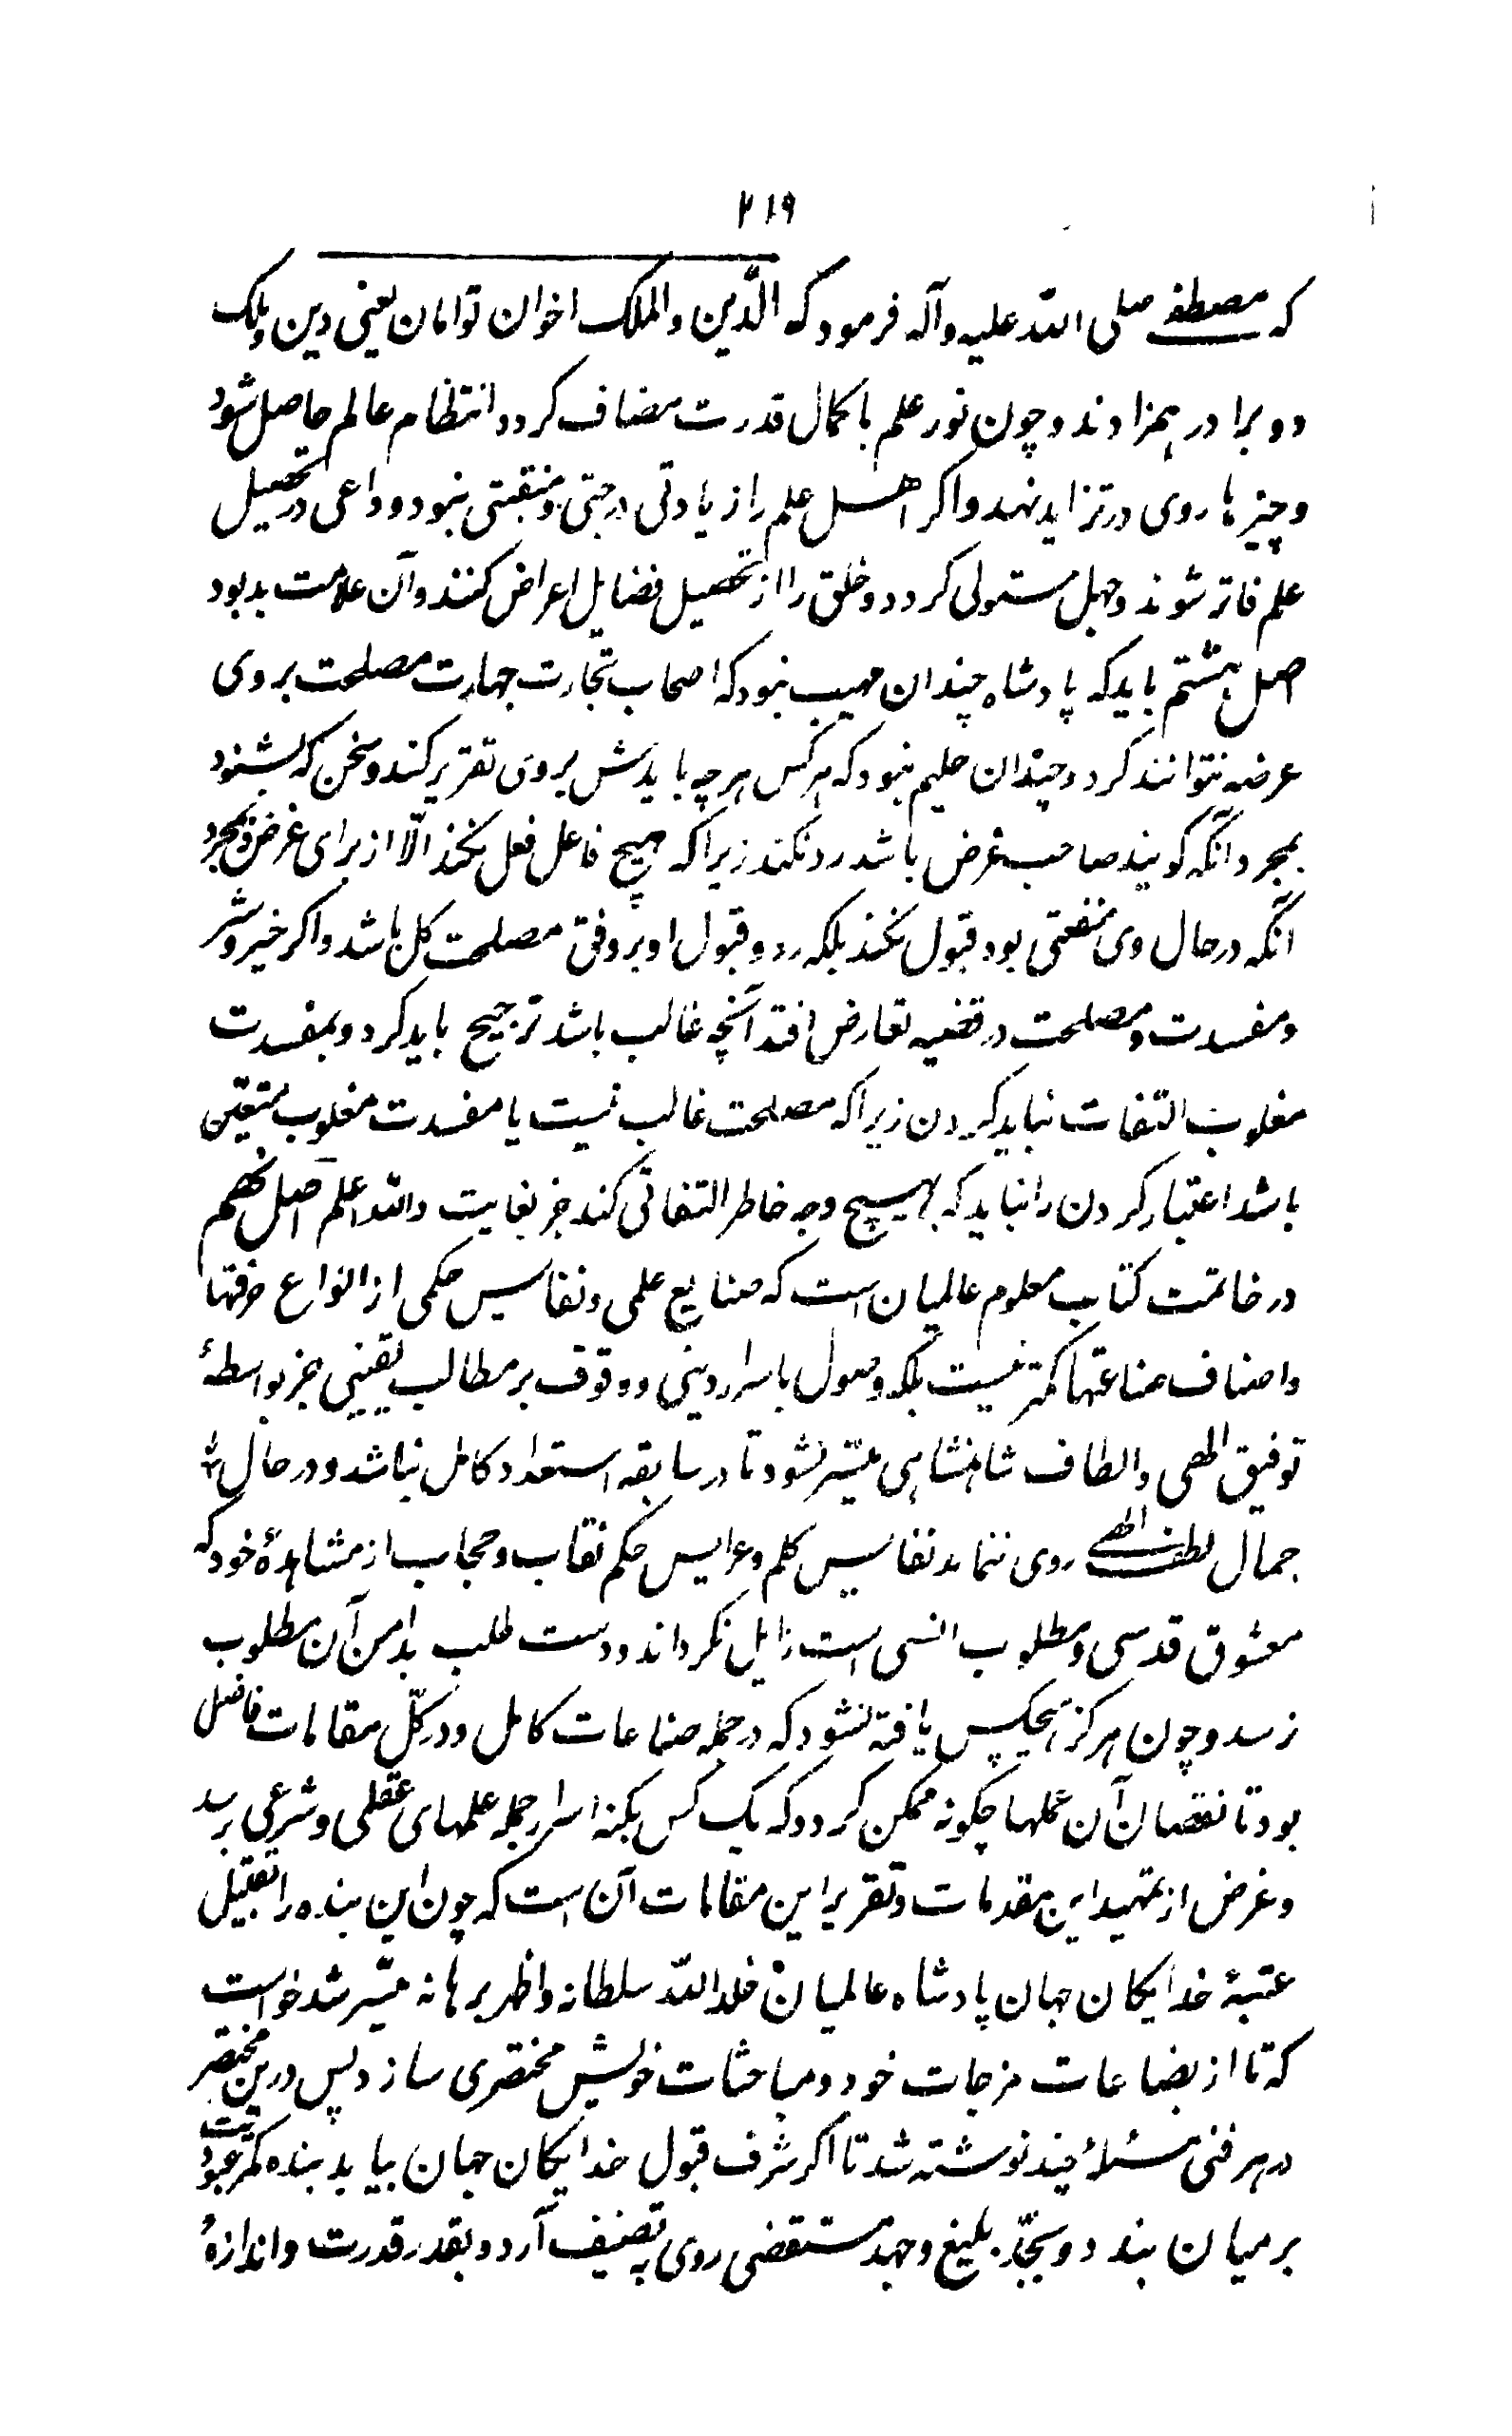 ۲۱۹
که مصطفے صلی اللّه علیه وآله فرمود که الدّین والملک اخوان توامان یعنی دین وملک
دو برادر همزادند و چون نور علم با کمال قدرت مضاف کردد انتظام عالم حاصل شود
و چیزها روی در تزاید نهد و اکر اهل علم را زیادتی درجتی و منقبتی نبود دواعی در تحصیل
علم فاتر شوند و جهل مستولی کردد و خلق را از تحصیل فضایل اعراض کنند و آن علامت بد بود
اصل هشتم باید که پادشاه چندان مهیب نبود که اصحاب تجارت جهارت مصلحت بر وی
عرضه نتوانند کرد و چندان حلیم نبود که هر کس هر چه بایدش بر وی تقریر کند و سخن که بشنود
بمجرد آنکه کویند صاحب غرض باشد رد نکند زیرا که هیچ فاعل فعل نکند الّا از برای غرض و بمجرد
آنکه در حال وی منفعتی بود قبول نکند بلکه رد و قبول او بر وفق مصلحت کل باشد و اکر خیر و شر
و مفسدت و مصلحت در قضیه تعارض افتد آنچه غالب باشد ترجیح باید کرد و بمفسدت
مغلوب التفات نباید کردن زیرا که مصلحت غالب نیست یا مفسدت مغلوب متیقن
باشد اعتبار کردن را نباید که بهیچ وجه خاطر التفاتی کند جز بغایت واللّه اعلم اصل نهم
در خاتمت کتاب معلوم عالمیان است که صنایع علمی و نفایس حکمی از انواع حرفتها
و اصناف صناعتها کمتر نیست بلکه وصول باسرار دینی و وقوف بر مطالب یقینی جز بواسطهٔ
توفیق الهی و الطاف شاهنشاهی میّسر نشود تا در سابقه استعداد کامل نباشد و در حال
جمال لطف الهی روی ننماید نفایس کلم و عرایس حکم نقاب و حجاب از مشاهدهٔ خود که
معشوق قدسی و مطلوب انسی است زایل نکرداند و دست طلب بدامن آن مطلوب
نرسد و چون هرکز هیچکس یافته نشود که در جمله صناعات کامل و در کلّ مقامات فاضل
بود تا نقصان آن عملها چکونه ممکن کردد که یک کس بکنه اسرار جمله علمهای عقلی و شرعی برسد
و غرض از تمهید این مقدمات و تقریر این مقامات آن است که چون این بنده را تقبیل
عتبهٔ خدایکان جهان پادشاه عالمیان خلد اللّه سلطانه و اظهر برهانه میّسر شد خواست
که تا از بضاعات مزجات خود و مباحثات خویش مختصری سازد پس درین مختصر
در هر فنی مسئلهٔ چند نوشته شد تا اکر شرف قبول خدایکان جهان بیابد بنده کمر عبودیت
بر میان بندد و بجّد بلیغ و جهد مستقضی روی بتصنیف آرد و بقدر قدرت و اندازهٔ